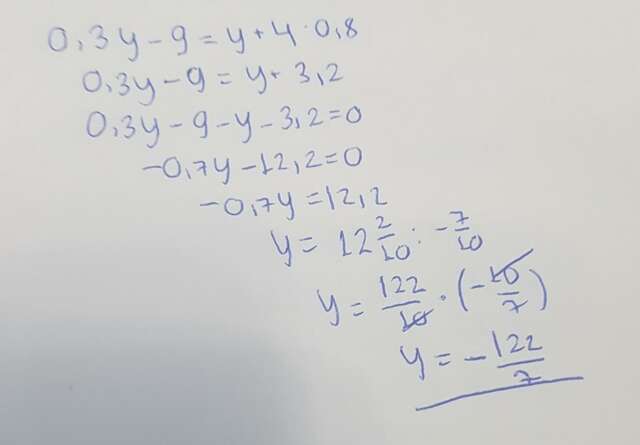 0,3y-9=y+4·0,8
0,3y-9=y+3,2
0,3y-9-y-3,2=0
-0,7y-12,2=0
-0,7y=12,2
y= 12 2/10 : -7/10
y= 122/10 · (-10/7)
y= -122/7